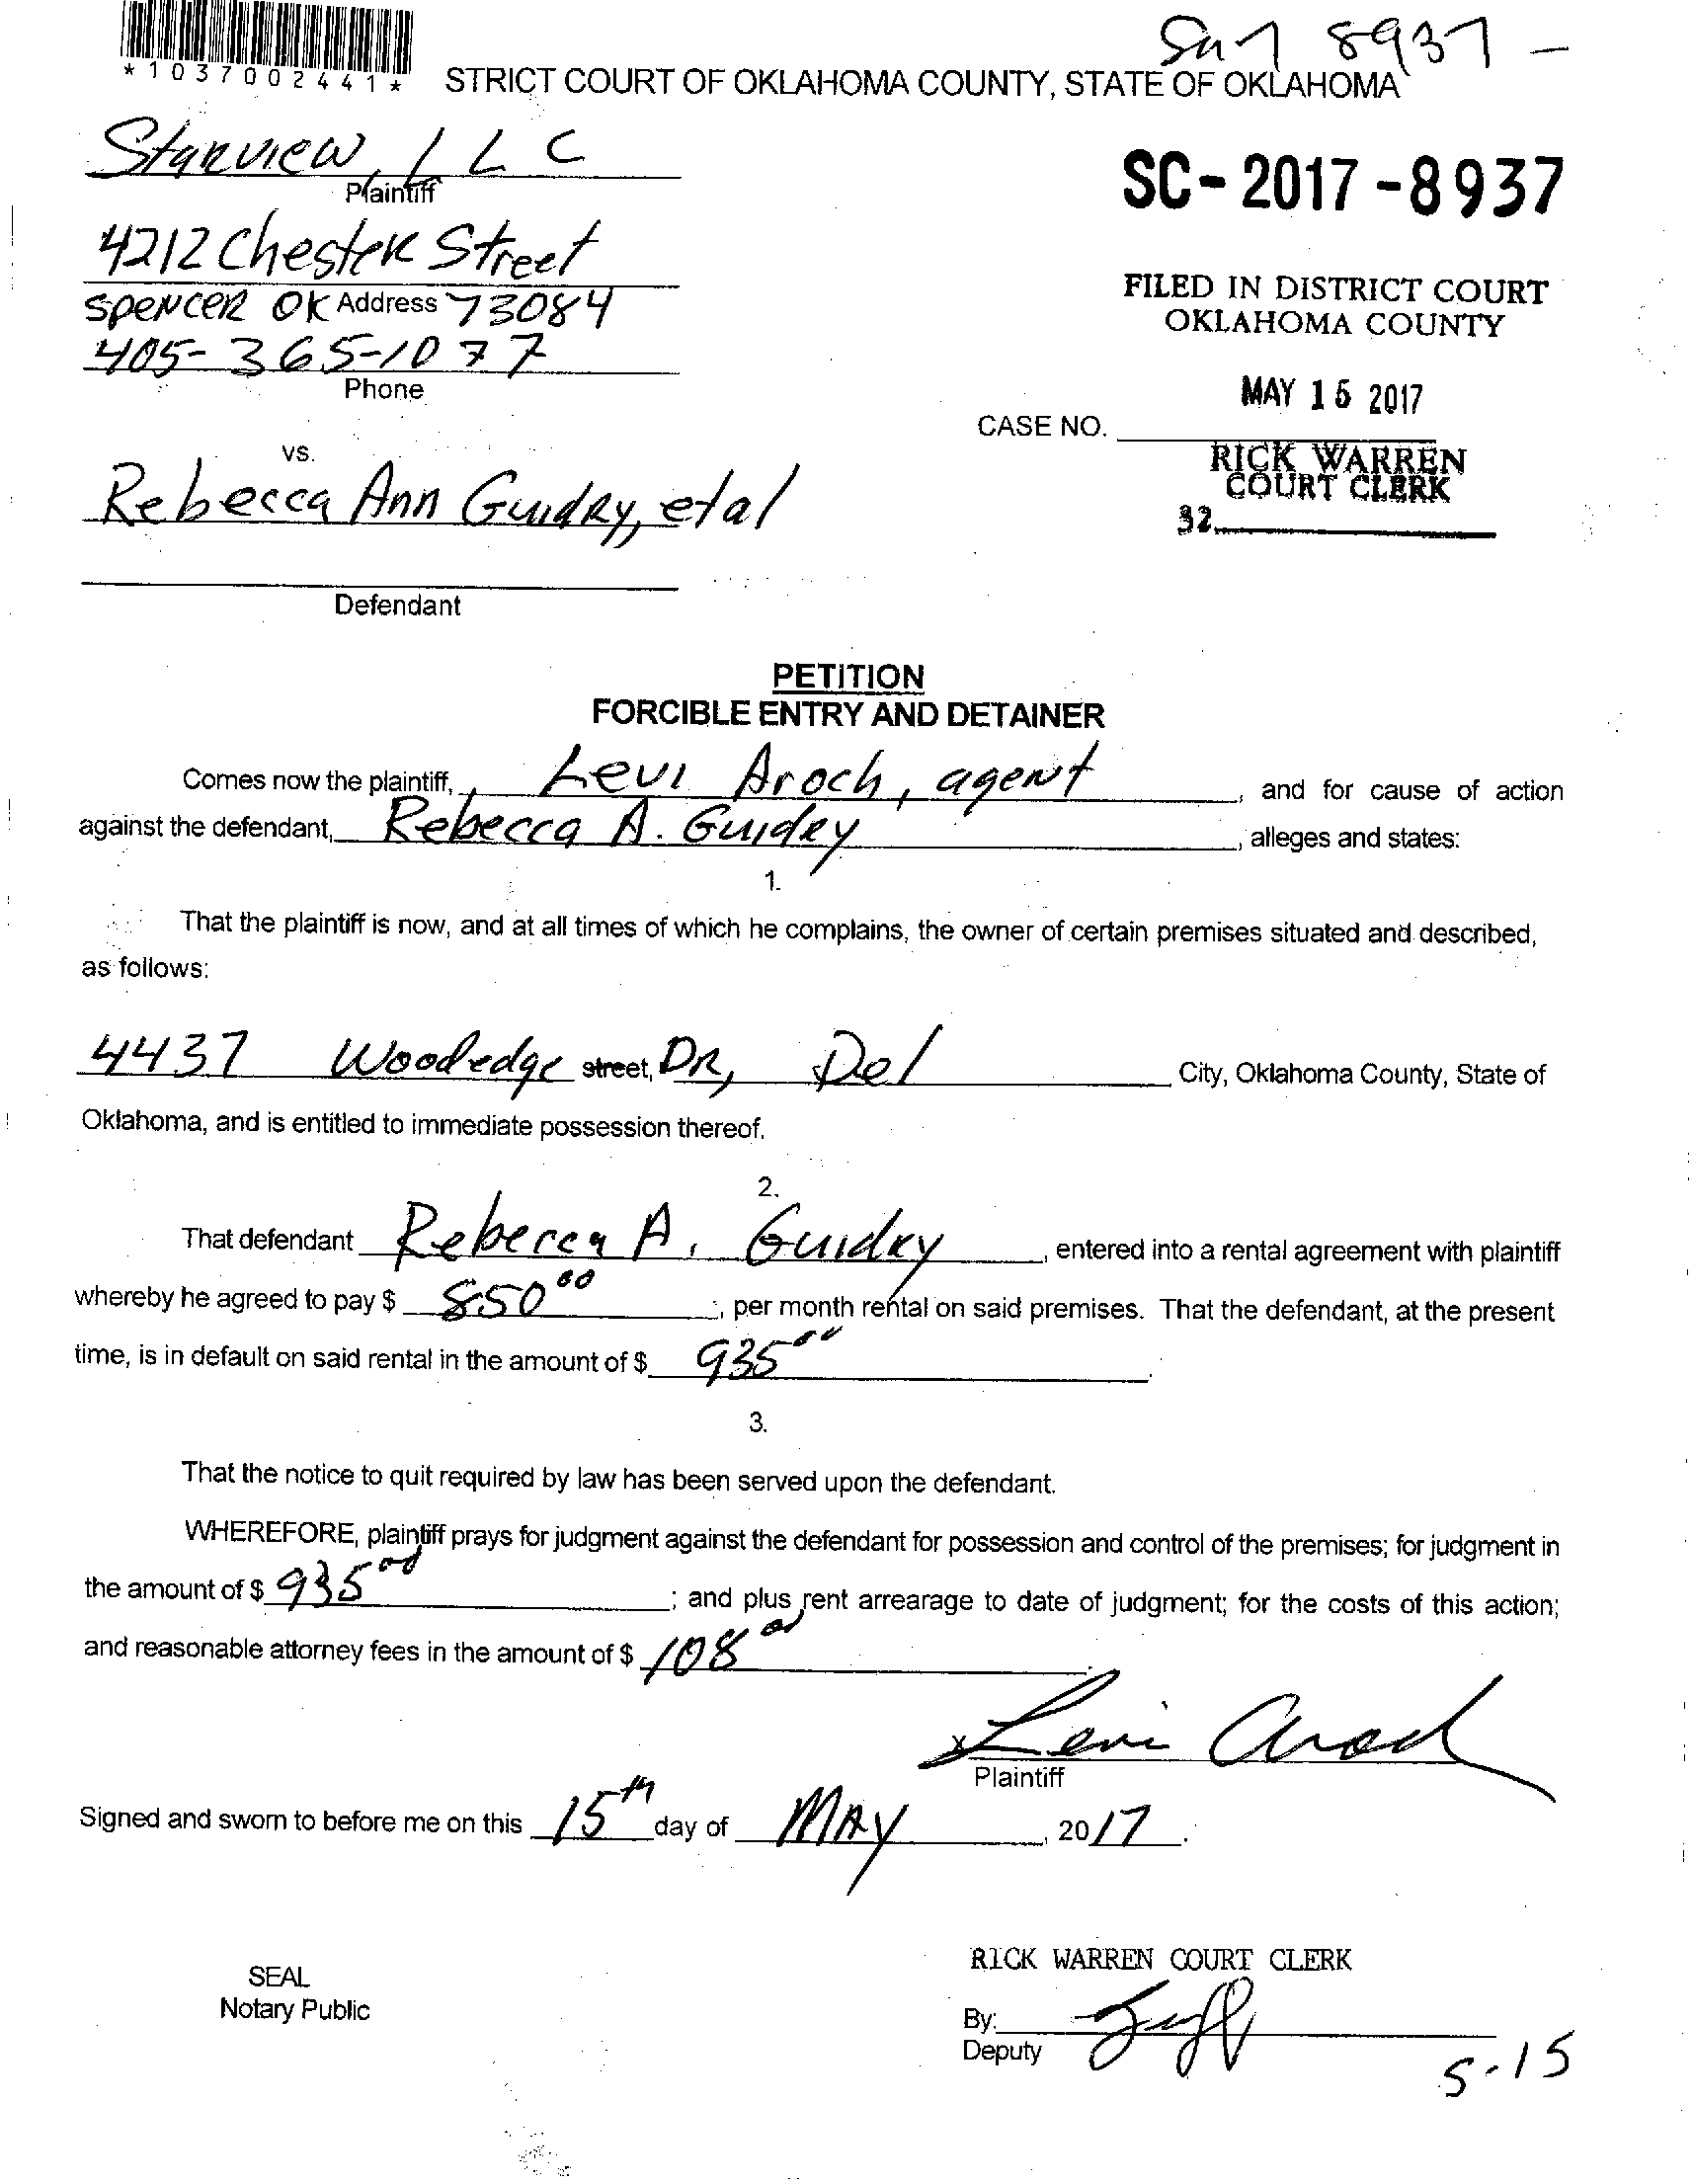 8937 -
*1037002441*
STRICT COURT OF OKLAHOMA COUNTY, STATE OF OKLAHOMA
Starview, LLC
Plaintiff
SC-2017-8937
4212 Chester Street
Spencer OK Address 73084
FILED IN DISTRICT COURT
OKLAHOMA COUNTY
405-365-1077
Phone
MAY 15 2017
CASE NO.
RICK WARREN
COURT CLERK
32
vs.
Rebecca Ann Guidry, et al
Defendant
PETITION
FORCIBLE ENTRY AND DETAINER
Comes now the plaintiff, Levi Aroch, agent, and for cause of action
against the defendant, Rebecca A. Guidry, alleges and states:
1.
That the plaintiff is now, and at all times of which he complains, the owner of certain premises situated and described,
as follows:
4437 Woodedge street, DR, Del City, Oklahoma County, State of
Oklahoma, and is entitled to immediate possession thereof.
2.
That defendant Rebecca A. Guidry, entered into a rental agreement with plaintiff
whereby he agreed to pay $ 850 00, per month rental on said premises. That the defendant, at the present
time, is in default on said rental in the amount of $ 935 00.
3.
That the notice to quit required by law has been served upon the defendant.
WHEREFORE, plaintiff prays for judgment against the defendant for possession and control of the premises; for judgment in
the amount of $ 935 00; and plus rent arrearage to date of judgment; for the costs of this action;
and reasonable attorney fees in the amount of $ 108 00.
x Levi Aroch
Plaintiff
Signed and sworn to before me on this 15th day of MAY, 2017.
SEAL
Notary Public
RICK WARREN COURT CLERK
By:
Deputy
5-15